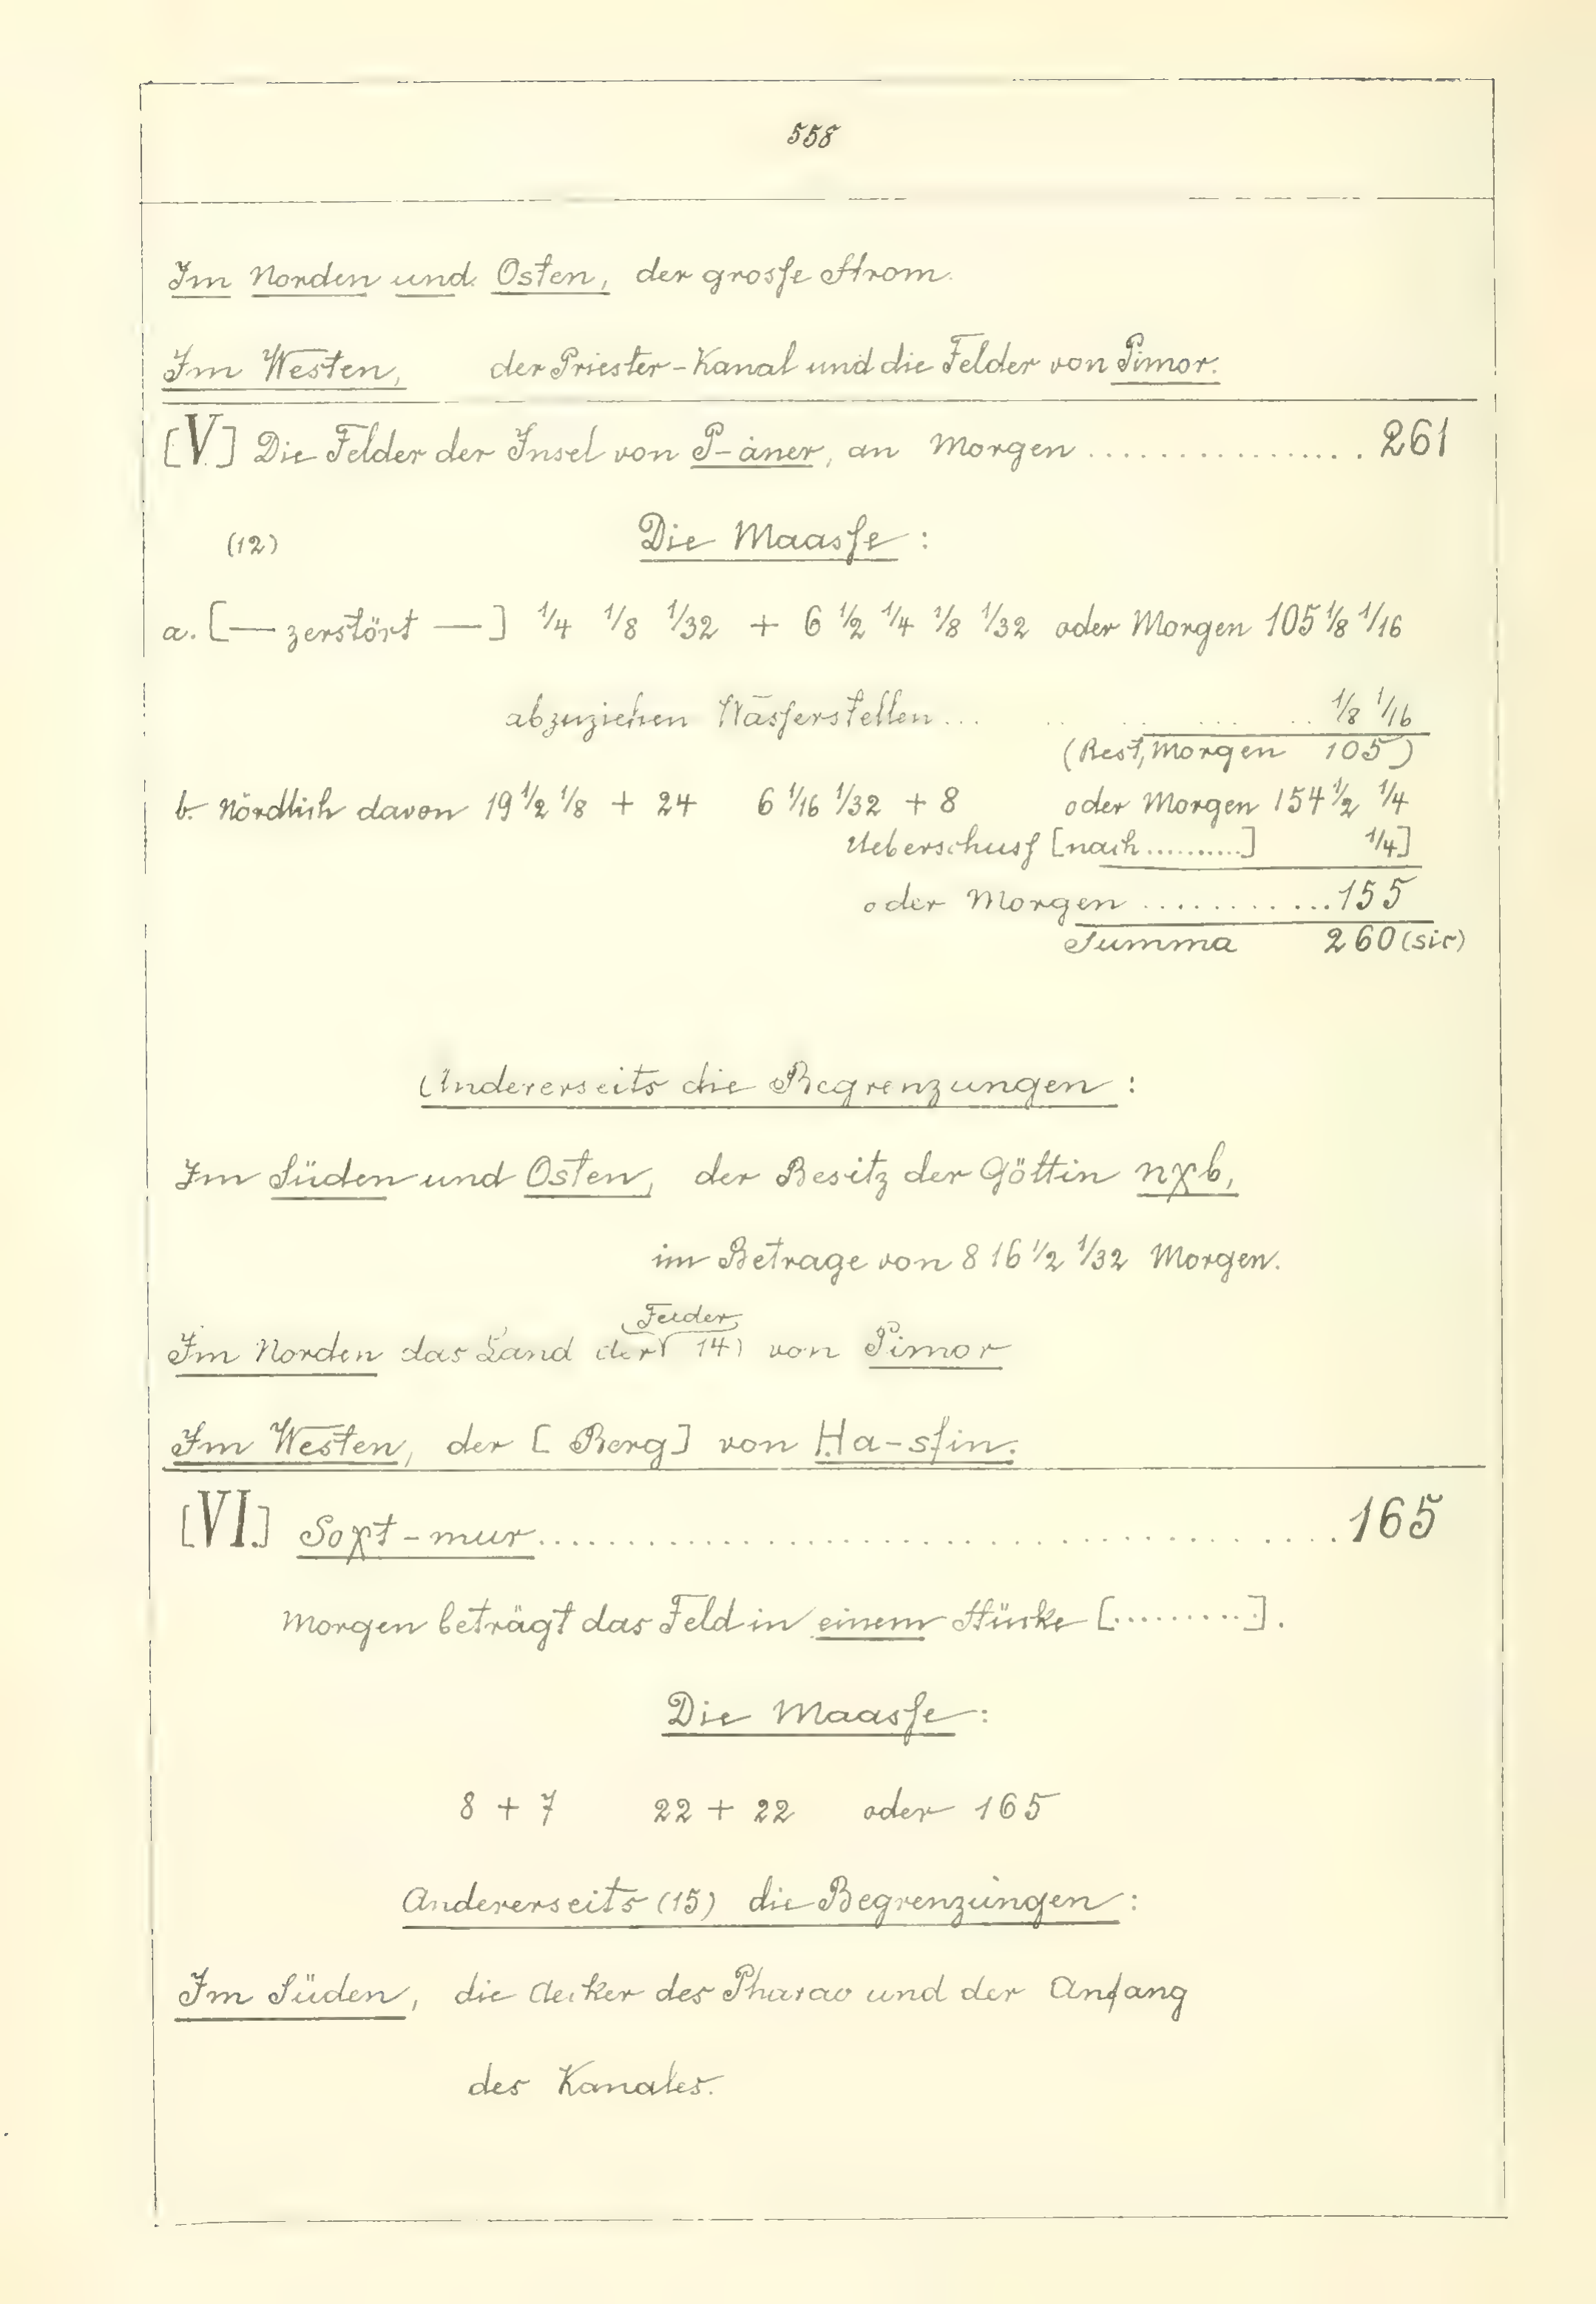 558
Im Norden und Osten, der grosse Strom.
Im Westen, der Priester-Kanal und die Felder von Pimor.
[V.] Die Felder der Insel von P-áner, an Morgen ................ 261
(12) Die Maasse:
a. [— zerstört —] 1/4 1/8 1/32 + 6 1/2 1/4 1/8 1/32 oder Morgen 105 1/8 1/16
abzuziehen Wasserstellen ... 1/8 1/16
(Rest, Morgen 105)
b. Nördlich davon 19 1/2 1/8 + 24 6 1/16 1/32 + 8 oder Morgen 154 1/2 1/4
Ueberschuss [nach ..........] 1/4]
oder Morgen ............ 155
Summa 260 (sic)
Andererseits die Begrenzungen:
Im Süden und Osten, der Besitz der Göttin nχb,
im Betrage von 816 1/2 1/32 Morgen.
Felder
Im Norden das Land der (14) von Pimor
Im Westen, der [Berg] von Ha-sfin.
[VI.] Soχt-mur ........................................ 165
Morgen beträgt das Feld in einem Stücke [..........].
Die Maasse:
8 + 7 22 + 22 oder 165
Andererseits (15) die Begrenzungen:
Im Süden, die Aecker des Pharao und der Anfang
des Kanales.